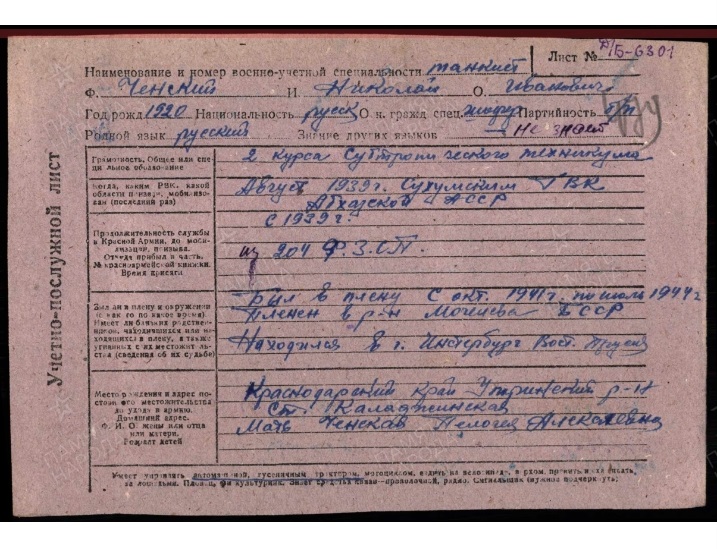 Лист № Д/Б-6301
Наименование и номер военно-учетной специальности танкист
Ф. Ченский И. Николай О. Иванович
Год рожд 1920 Национальность русск О н. гражд спец. шофер Партийность б/п
Родной язык русский Знание других языков не знает
Учетно-послужной лист
Грамотность, Общее или спе
циальное образование
2 курса Субтропического техникума
Когда, каким РВК, какой
области призван, мобилизо-
ван (последний раз)
Август 1939 г. Сухумским ГВК
Абхазской АССР
с 1939 г.
Продолжительность службы
в Красной Армии, до мо-
билизации, призыва.
Откуда прибыл в часть.
№ красноармейской книжки.
Время присяги
из 204 Ф.З.С.П.
Был ли в плену и окружении
(с как го по какое время).
Имеет ли близких родстве-
нников, находившихся или на-
ходящихся в плену, а также
угнанных с их местожит ль-
ства (сведения об их судьбе)
Был в плену с окт. 1941 г. по 1944 г
Пленен в р-н Могилева БССР
Находился в г. Инстербург Вост. Пруссия
Место рождения и адрес пос-
тоян ого местожительства
до ухода в армию.
Домашний адрес.
Ф. И. О жены или отца
или матери.
Возраст детей
Краснодарский край р-н
ст. Каладжинская
Мать Ченская Пелогея
Умеет управлять автомашиной, гусеничным трактором, мотоциклом, ездить на велосипеде, верхом,
за лошадьми. Пловец, физкультурник. Знает средства связи—проволочной, радио. Сигнальщик (нужное подчеркнуть)